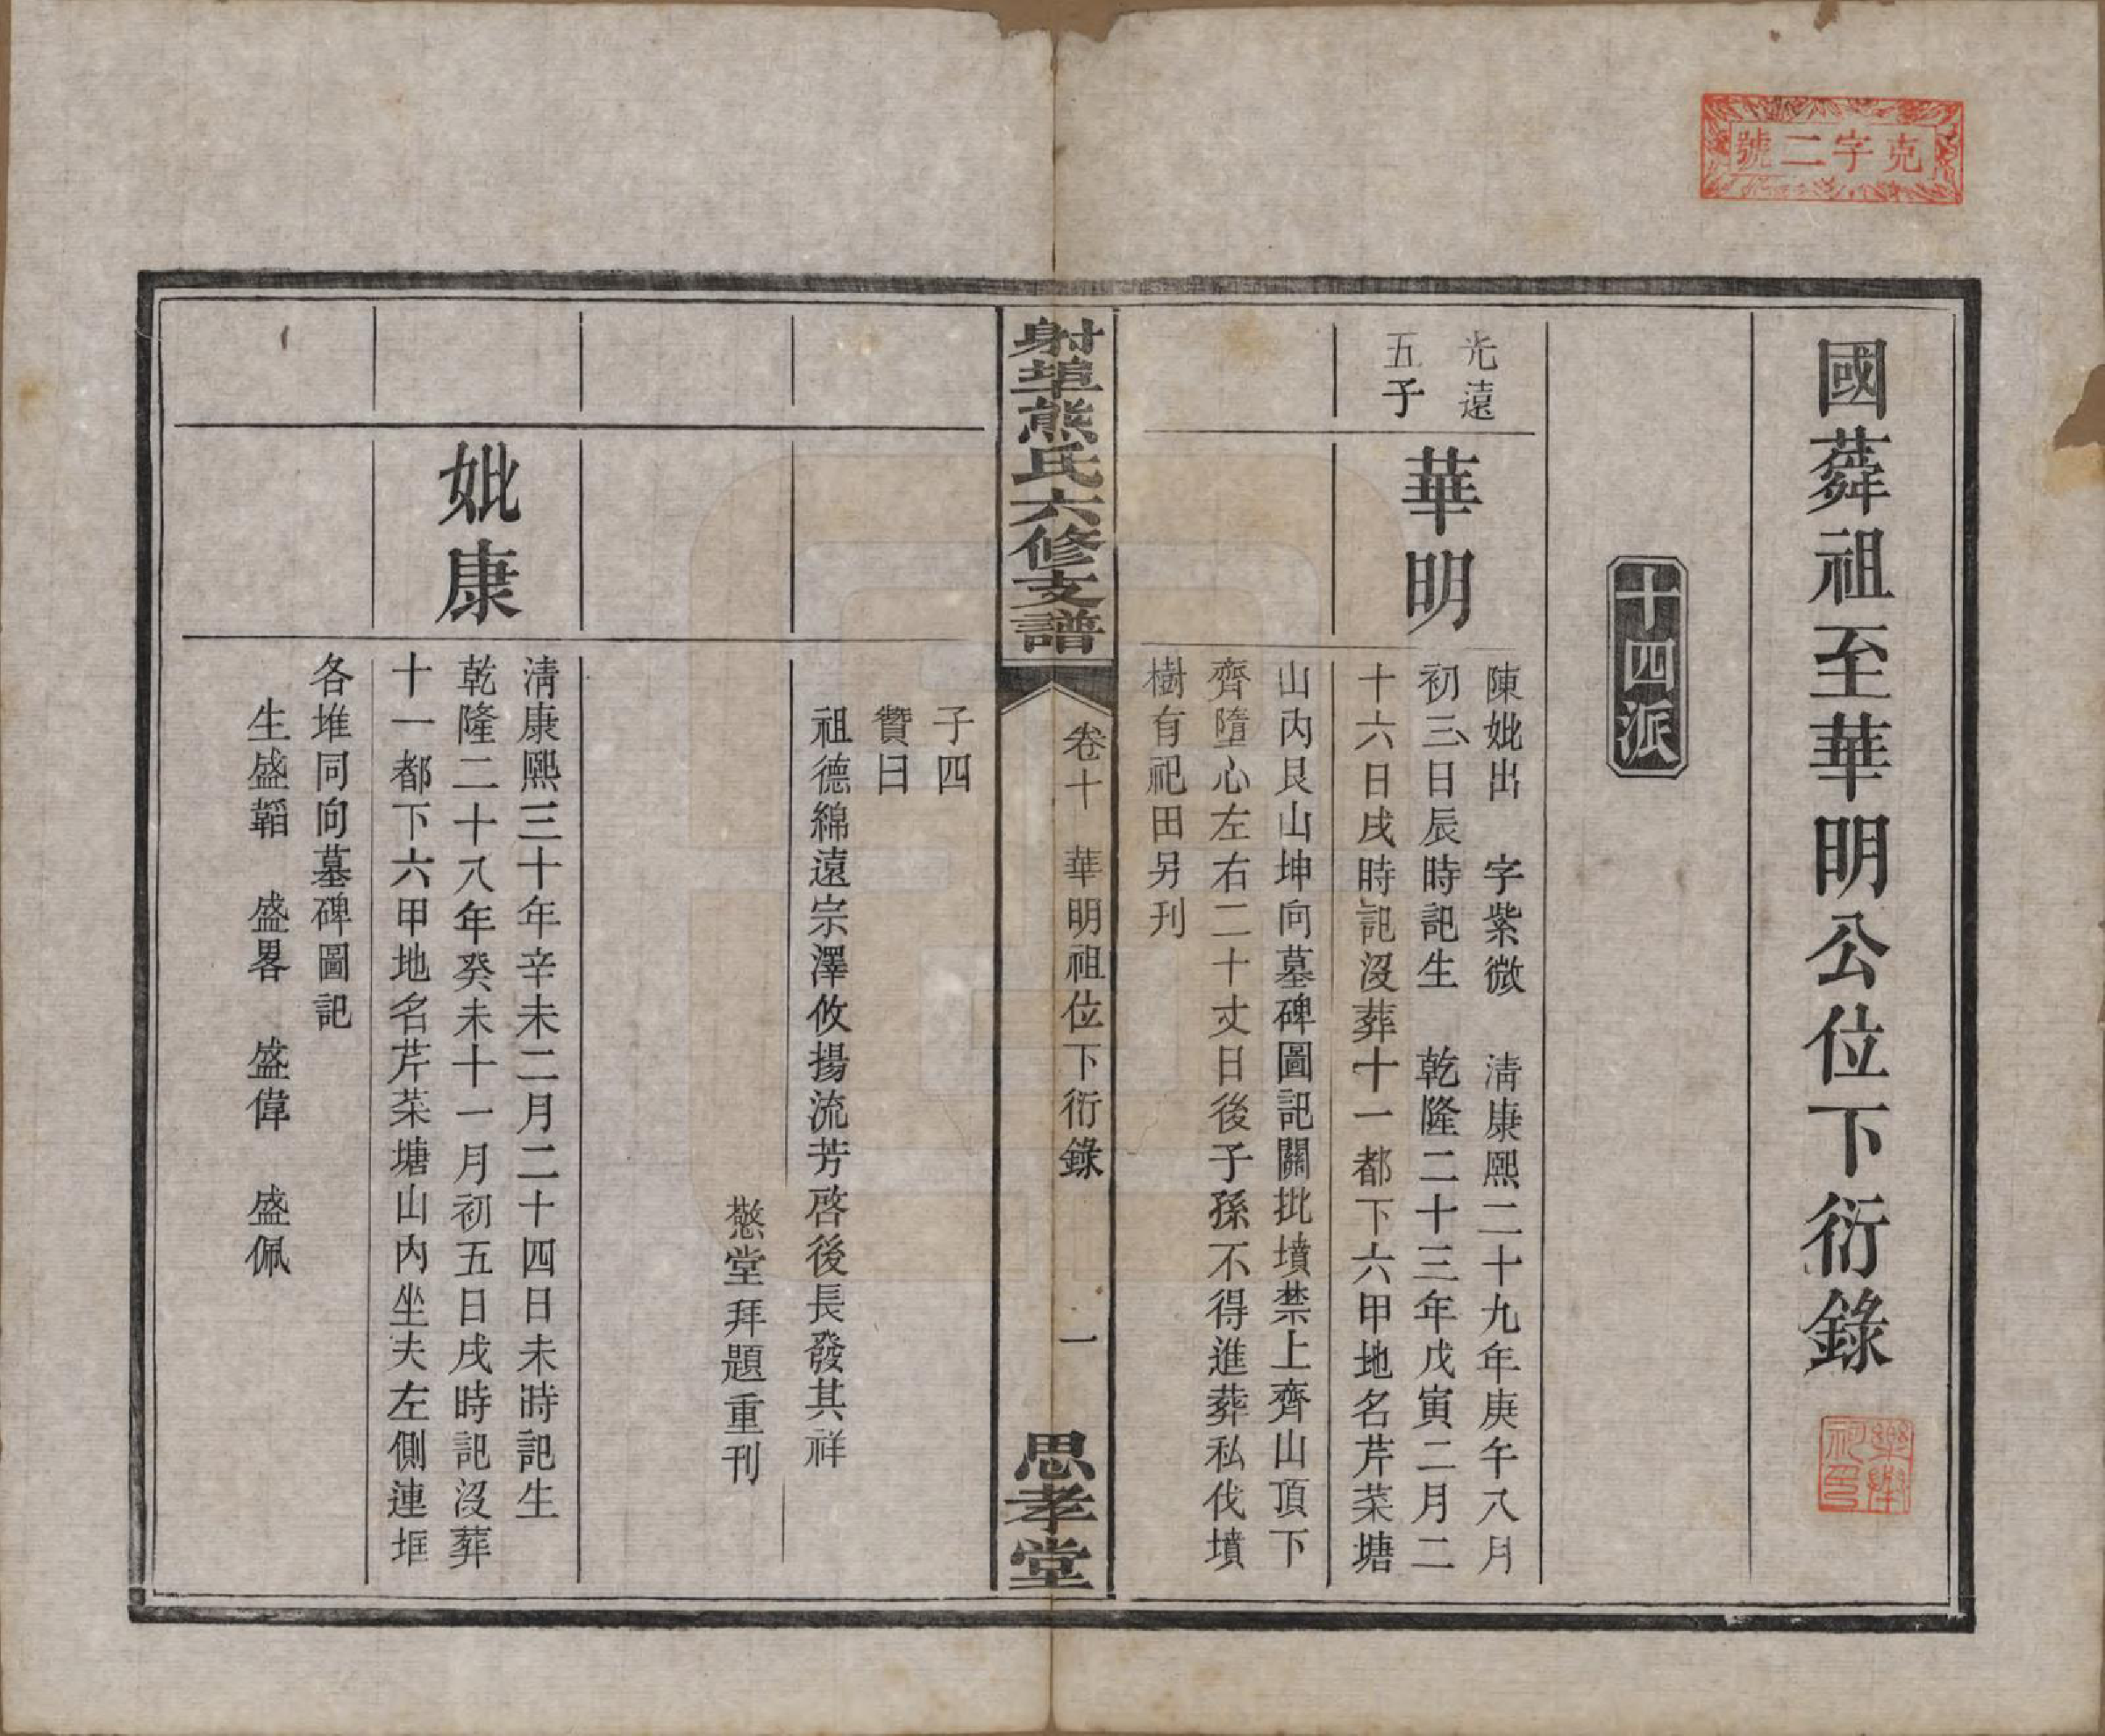 克字二號
國蕣祖至華明公位下衍錄
十四派
光遠
五子
華明
陳妣出　字紫微　清康熙二十九年庚午八月
初三日辰時記生　乾隆二十三年戊寅二月二
十六日戌時記沒葬十一都下六甲地名芹菜塘
山內艮山坤向墓碑圖記關批墳禁上齊山頂下
齊墮心左右二十丈日後子孫不得進葬私伐墳
樹有祀田另刊
射埠熊氏六修支譜
卷十　華明祖位下衍錄　一
思孝堂
子四
贊曰
祖德綿遠宗澤攸揚流芳啓後長發其祥
憗堂拜題重刊
妣康
清康熙三十年辛未二月二十四日未時記生
乾隆二十八年癸未十一月初五日戌時記沒葬
十一都下六甲地名芹菜塘山內坐夫左側連堆
各堆同向墓碑圖記
生盛韜　盛畧　盛偉　盛佩